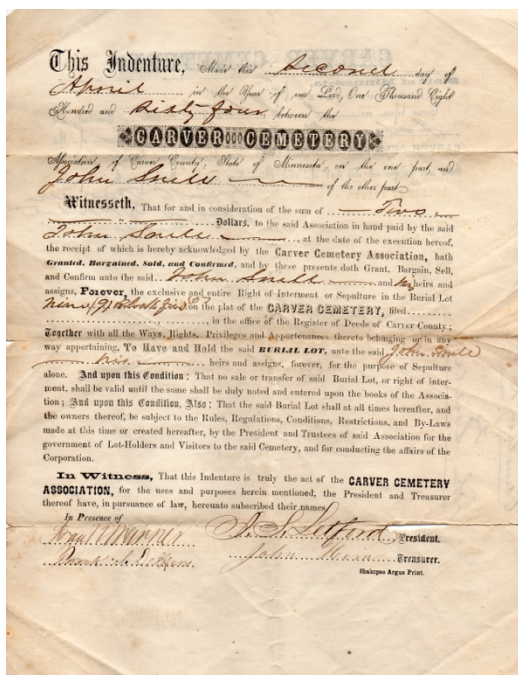 This Indenture, Made this Second day of
April in the Year of our Lord, One Thousand Eight
Hundred and Sixty four between the
CARVER CEMETERY
Association, of Carver County, State of Minnesota, on the one part, and
John of the other part
Witnesseth, That for and in consideration of the sum of Two
Dollars, to the said Association in hand paid by the said
John at the date of the execution hereof,
the receipt of which is hereby acknowledged by the Carver Cemetery Association, hath
Granted, Bargained, Sold, and Confirmed, and by these presents doth Grant, Bargain, Sell,
and Confirm unto the said John and his heirs and
assigns, Forever, the exclusive and entire Right of interment or Sepulture in the Burial Lot
nine (9) on the plat of the CARVER CEMETERY, filed
in the office of the Register of Deeds of Carver County;
Together with all the Ways, Rights, Privileges and Appurtenances thereto belonging or in any
way appertaining. To Have and Hold the said BURIAL LOT, unto the said John
his heirs and assigns, forever, for the purpose of Sepulture
alone. And upon this Condition: That no sale or transfer of said Burial Lot, or right of inter-
ment, shall be valid until the same shall be duly noted and entered upon the books of the Associa-
tion; And upon this Condition, Also: That the said Burial Lot shall at all times hereafter, and
the owners thereof, be subject to the Rules, Regulations, Conditions, Restrictions, and By-Laws
made at this time or created hereafter, by the President and Trustees of said Association for the
government of Lot-Holders and Visitors to the said Cemetery, and for conducting the affairs of the
Corporation.
In Witness, That this Indenture is truly the act of the CARVER CEMETERY
ASSOCIATION, for the uses and purposes herein mentioned, the President and Treasurer
thereof have, in pursuance of law, hereunto subscribed their names,
In Presence of
Warner President.
John Treasurer.
Shakopee Argus Print.